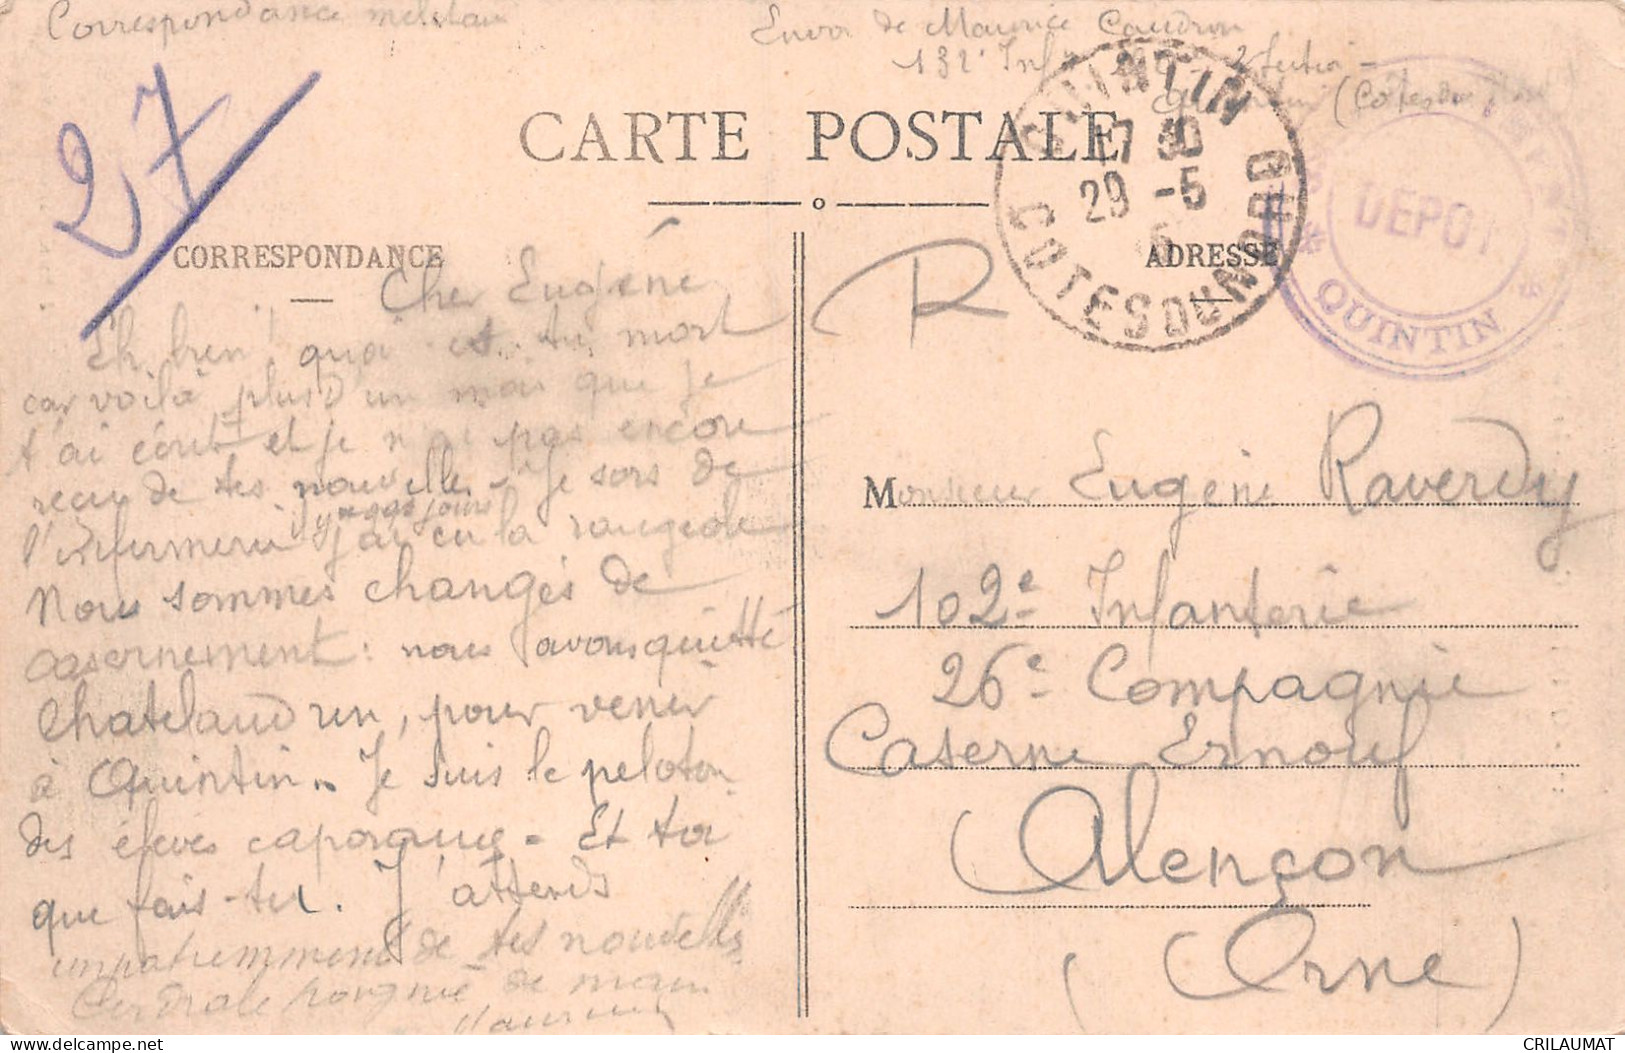 Correspondance militair
Envoi de Maurice Caudron
132e Inf 2e section
Quintin (Cotes du Nord)
27
CARTE POSTALE
QUINTIN
17 30
29 -5
COTES DU NORD
DÉPOT
* QUINTIN *
CORRESPONDANCE
ADRESSE
R
Cher Eugéne
Eh bien quoi es tu mort
car voilà plus d'un mois que je
t'ai écrit et je n'ai pas encore
reçu de tes nouvelles - Je sors de
l'infirmerie j'ai eu la rougeole
Nous sommes changés de
casernement : nous avons quitté
Chatelaudren, pour venir
à Quintin. Je suis le peloton
des élèves caporaux. Et toi
que fais-tu. J'attends
impatiemment de tes nouvelles
Cordiale poignée de main
Maurice
Monsieur Eugéne Raverdy
102e Infanterie
26e Compagnie
Caserne Ernouf
Alençon
(Orne)
CRILAUMAT